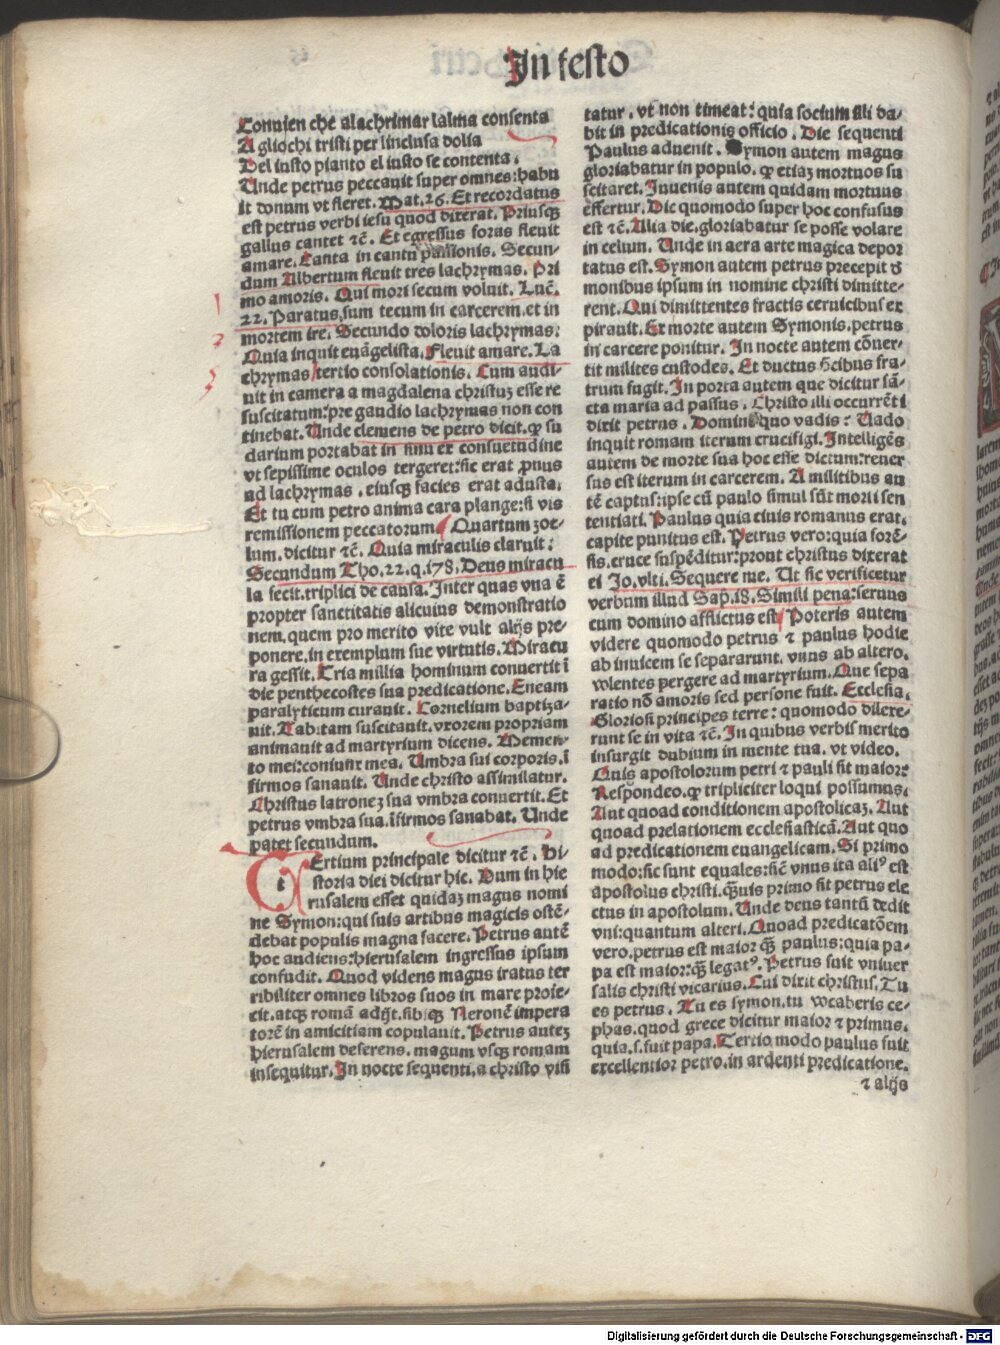 In festo
Conuien che alachrimar lalma consenta
A gliochi tristi per linclusa dolia
Del iusto pianto el iusto se contenta.
Unde petrus peccauit super omnes: habu
it donum vt fleret. Mat. 26. Et recordatus
est petrus verbi iesu quod dixerat. Priusqꝫ
gallus cantet ⁊c̄. Et egressus foras fleuit
amare. Canta in cantu passionis. Secun-
dum Albertum fleuit tres lachrymas. Pri
mo amoris. Qui mori secum voluit. Luc̄.
22. Paratus sum tecum in carcerem.et in
mortem ire. Secundo doloris lachrymas:
Quia inquit euāgelista. Fleuit amare. La
chrymas tertio consolationis. Cum audi-
uit in camera a magdalena christuꝫ esse re
suscitatum: pre gaudio lachrymas non con
tinebat. Unde clemens de petro dicit. ꝙ su
darium portabat in sinu ex consuetudine
vt sepissime oculos tergeret: sic erat ꝓnus
ad lachrymas. eiusqꝫ facies erat adusta.
Et tu cum petro anima cara plange: si vis
remissionem peccatorum. Quartum zoe-
lum. dicitur ⁊c̄. Quia miraculis claruit:
Secundum Tho. 22. q. 178. Deus miracu
la fecit. triplici de causa. Inter quas vna ē
propter sanctitatis alicuius demonstratio
nem. quem pro merito vite vult alijs pre-
ponere. in exemplum sue virtutis. Miracu
ra gessit. Tria millia hominum conuertit ī
die penthecostes sua predicatione. Eneam
paralyticum curauit. Cornelium baptiza-
uit. Tabitam suscitauit. vxorem propriam
animauit ad martyrium dicens. Memen-
to mei: coniunx mea. Umbra sui corporis. ī
firmos sanauit. Unde christo assimilatur.
Christus latroneꝫ sua vmbra conuertit. Et
petrus vmbra sua. īfirmos sanabat. Unde
patet secundum.
t Ertium principale dicitur ⁊c̄. Hi-
storia diei dicitur hic. Dum in hie
rusalem esset quidaꝫ magus nomi
ne Symon: qui suis artibus magicis ostē-
debat populis magna facere. Petrus autē
hoc audiens: hierusalem ingressus ipsum
confudit. Quod videns magus iratus ter
ribiliter omnes libros suos in mare proie-
cit. atqꝫ romā adijt. sibiqꝫ Neronē impera
torē in amicitiam copulauit. Petrus auteꝫ
hierusalem deserens. magum vsqꝫ romam
insequitur. In nocte sequenti. a christo visi
tatur. vt non timeat: quia socium illi da-
bit in predicationis officio. Die sequenti
Paulus aduenit. Symon autem magus
gloriabatur in populo. ꝙ etiaꝫ mortuos su
scitaret. Iuuenis autem quidam mortuus
effertur. Dic quomodo super hoc confusus
est ⁊c̄. Alia die. gloriabatur se posse volare
in celum. Unde in aera arte magica depor
tatus est. Symon autem petrus precepit de
monibus ipsum in nomine christi dimitte-
rent. Qui dimittentes fractis ceruicibus ex
pirauit. Ex morte autem Symonis. petrus
in carcere ponitur. In nocte autem cōuer-
tit milites custodes. Et ductus p̄cibus fra-
trum fugit. In porta autem que dicitur sā-
cta maria ad passus. Christo illi occurrēti
dixit petrus. Domine quo vadis: Uado
inquit romam iterum crucifigi. Intelligēs
autem de morte sua hoc esse dictum: reuer
sus est iterum in carcerem. A militibus au
tē captus: ipse cū paulo simul sūt morti sen
tentiati. Paulus quia ciuis romanus erat.
capite punitus est. Petrus vero: quia forē-
sis. cruce suspēditur: prout christus dixerat
ei Jo. vlti. Sequere me. Ut sic verificetur
verbum illud Sap̄. 18. Simili pena: seruus
cum domino afflictus est. Poteris autem
videre quomodo petrus ⁊ paulus hodie
ab inuicem se separarunt. vnus ab altero.
volentes pergere ad martyrium. Que sepa
ratio nō amoris sed persone fuit. Ecclesia.
Gloriosi principes terre: quomodo dilexe-
runt se in vita ⁊c̄. In quibus verbis merito
insurgit dubium in mente tua. vt video.
Quis apostolorum petri ⁊ pauli sit maior:
Respondeo. ꝙ tripliciter loqui possumus.
Aut quoad conditionem apostolicaꝫ. Aut
quoad prelationem ecclesiasticā. Aut quo
ad predicationem euangelicam. Si primo
modo: sic sunt equales: sic̄ vnus ita aliꝰ est
apostolus christi. qꝫuis primo sit petrus ele
ctus in apostolum. Unde deus tantū dedit
vni: quantum alteri. Quoad predicatōem
vero. petrus est maior qꝫ paulus: quia pa-
pa est maior: qꝫ legatꝰ. Petrus fuit vniuer
salis christi vicarius. Cui dixit christus. Tu
es petrus. Tu es symon. tu vocaberis ce-
phas. quod grece dicitur maior ⁊ primus.
quia. s. fuit papa. Tertio modo paulus fuit
excellentior petro. in ardenti predicatione.
⁊ alijs
Digitalisierung gefördert durch die Deutsche Forschungsgemeinschaft - DFG